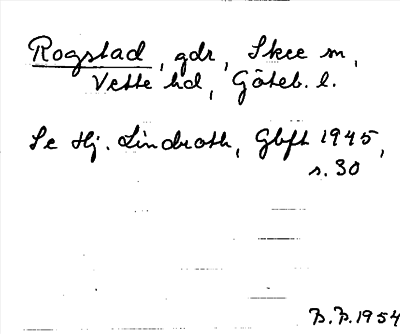 Rogstad, gdr, Skee sn,
Vette hd, Göteb. l.
Se Hj. Lindroth, Gbft 1945,
s. 30
B.P. 1954